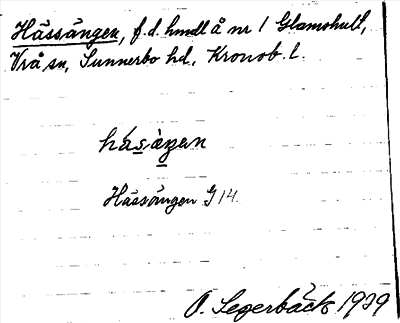 Hässängen, f.d. hmdl å nr 1 Glamshult,
Vrå sn, Sunnerbo hd, Kronob. l.
hásàŋen
Hässängen G 14.
O. Segerbäck 1929